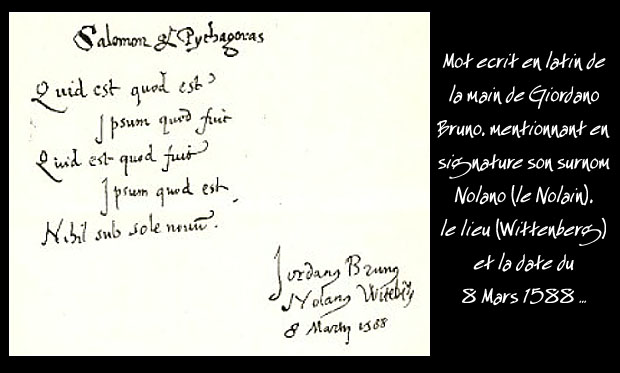 Salomon et Pythagoras
Quid est quod est?
Ipsum quod fuit
Quid est quod fuit?
Ipsum quod est.
Nihil sub sole nouū.
Jordanꝰ Brunꝰ
Nolanꝰ Witeb̃g
8 Martij 1588
Mot ecrit en latin de
la main de Giordano
Bruno, mentionnant en
signature son surnom
Nolano (le Nolain),
le lieu (Wittenberg)
et la date du
8 Mars 1588 ...